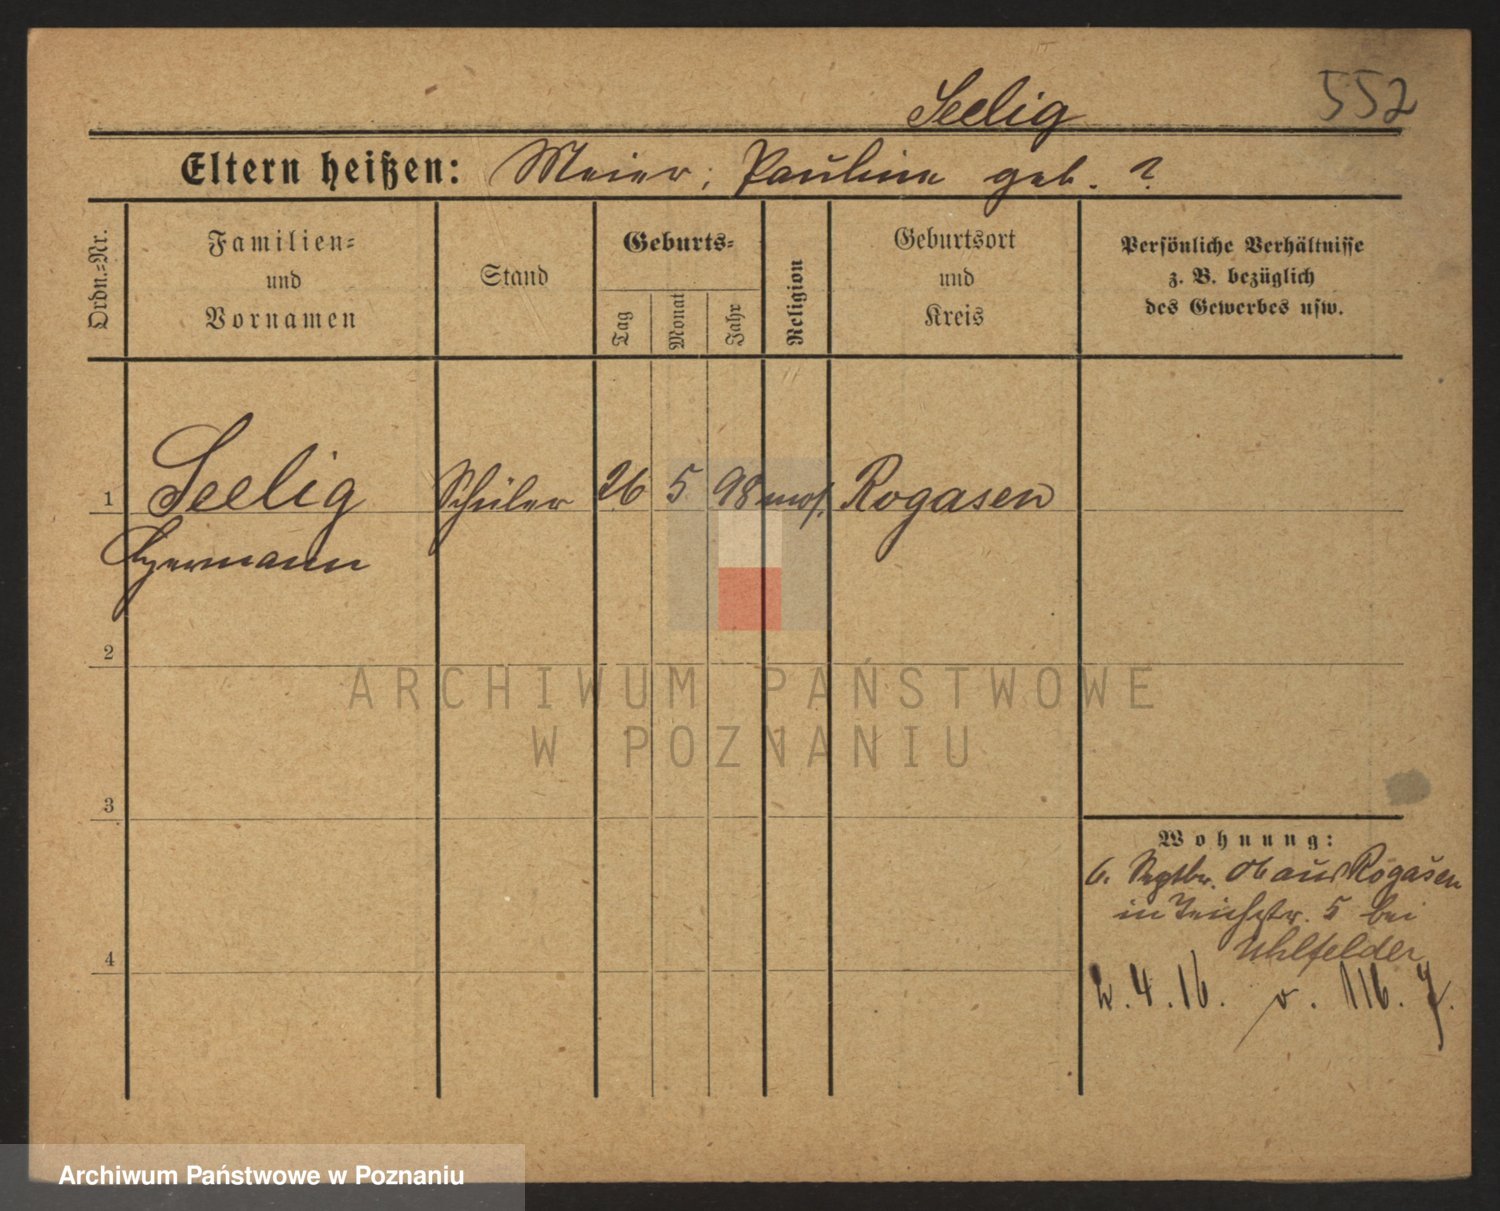 552
Seelig
Eltern heißen: Meier, Pauline geb. ?
Ordn.=Nr.
Familien=
und
Vornamen
Stand
Geburts=
Tag
Monat
Jahr
Religion
Geburtsort
und
Kreis
Persönliche Verhältnisse
z. B. bezüglich
des Gewerbes usw.
1 Seelig Schüler 26 5 98 mos. Rogasen
Hermann
2
3
4
Wohnung:
6. Septbr. 06 aus Rogasen
in Teichstr. 5 bei
Uhlfelder
4.16. v. 116.
ARCHIWUM PAŃSTWOWE
W POZNANIU
Archiwum Państwowe w Poznaniu